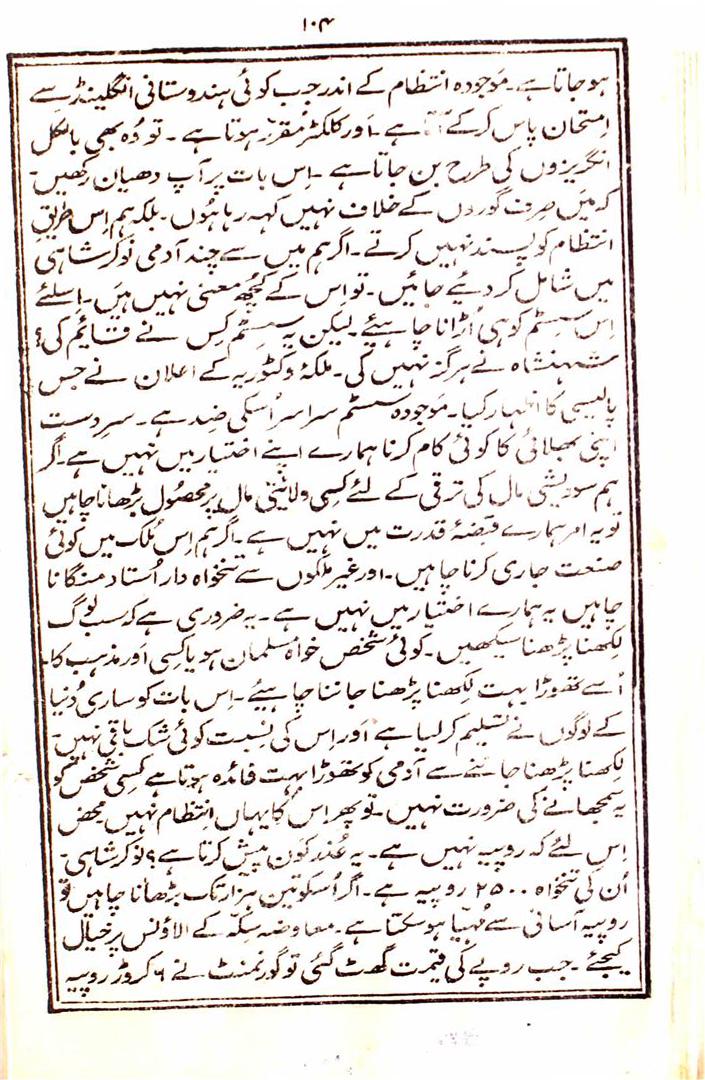 ۱۰۴
ہو جاتا ہے۔ موجودہ انتظام کے اندر جب کوئی ہندوستانی انگلینڈ سے
امتحان پاس کر کے آتا ہے۔ اور کلکٹر مقرر ہوتا ہے۔ تو وُہ بھی بالکل
انگریزوں کی طرح بن جاتا ہے۔ اِس بات پر آپ دھیان رکھیں۔
کہ میَں صِرف گوروں کے خلاف نہیں کہہ رہا ہُوں۔ بلکہ ہم اِس طریقِ
انتظام کو پسند نہیں کرتے۔ اگر ہم میں سے چند آدمی نوکر شاہی
میں شامل کر دئیے جائیں۔ تو اِس کے کچُھ معنی نہیں ہیَں۔ اِسلئے
اِس سِسٹم کو ہی اُڑانا چاہیئے۔ لیکن یہ سِسٹم کِس نے قایٔم کی؟
شہنشاہ نے ہرگز نہیں کی۔ ملکۂ وکٹوریہ کے اعلان نے جِس
پالیسی کا اظہار کیا۔ موَجودہ سسٹم سراسر اُسکی ضد ہے۔ سرِدست
اپنی بھلائی کا کوئی کام کرنا ہمارے اپنے اختیار میں نہیں ہے۔ اگر
ہم سودیشی مال کی ترقی کے لئے کِسی ولایٔتی مال پر محصُول بڑھانا چاہیں
تو یہ امر ہمارے قبضۂ قدرت میں نہیں ہے۔ اگر ہم اِس مُلک میں کوئی
صنعت جاری کرنا چاہیں۔ اور غیر ملکوں سے تنخواہ دار اُستاد منگانا
چاہیں یہ ہمارے اختیار میں نہیں ہے۔ یہ ضروری ہے کہ سب لوگ
لِکھنا پڑھنا سیکھیں۔ کوئی شخص خواہ مسلمان ہو یا کِسی اَور مذہب کا۔
اُسے تھوڑا بہت لِکھنا پڑھنا جاننا چاہیئے۔ اِس بات کو ساری دُنیا
کے لوگوں نے تسلیم کر لیا ہے اور اِس کی نِسبت کوئی شک باقی نہیں۔
لِکھنا پڑھنا جاننے سے آدمی کو تھوڑا بہت فائدہ ہوتا ہے کسِی شخص کو
یہ سمجھانے کی ضرورت نہیں۔ تو پھر اِس کا یہاں اِنتظام نہیں محض
اِس لئے کہ روپیہ نہیں ہے۔ یہ عُذر کون پیش کرتا ہے؟ نوکر شاہی۔
اُن کی تنخواہ ۲۵۰۰ روپیہ ہے۔ اگر اُسکو تین ہزار تک بڑھانا چاہیں تو
روپیہ آسانی سے مُہیّا ہو سکتا ہے۔ معاوضہ سِکّہ کے الاؤنس پر خیال
کیجئے۔ جب روپے کی قیمت گھٹ گئی تو گورنمنٹ نے ۶ کروڑ روپیہ